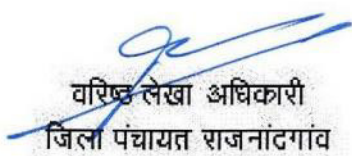 वरिष्ठ लेखा अधिकारी
जिला पंचायत राजनांदगांव